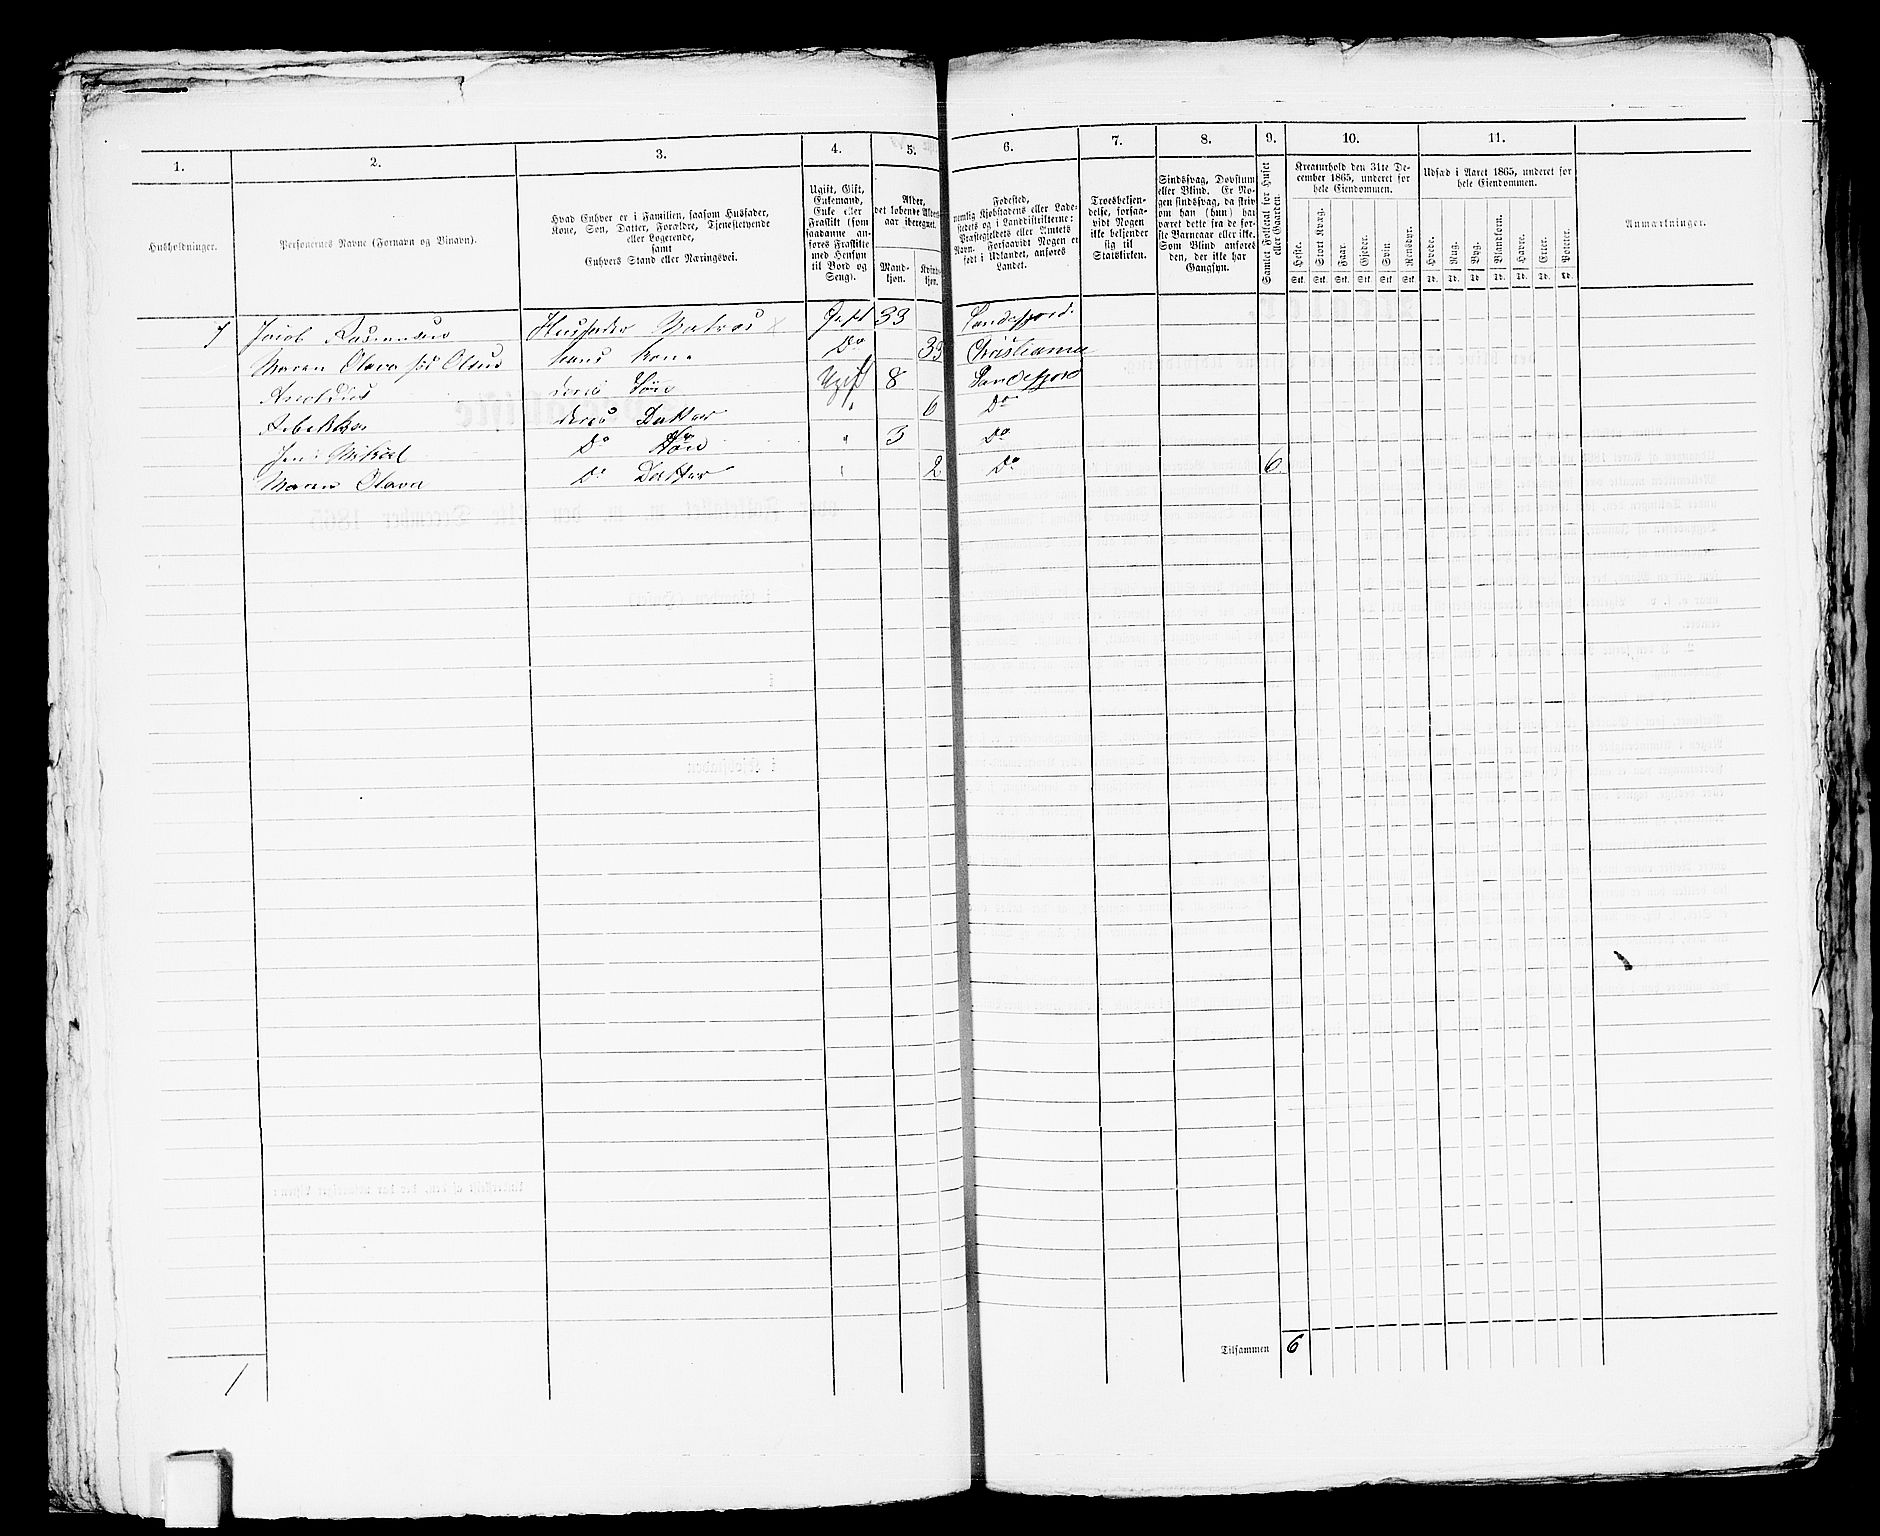 1. 2. 3. 4. 5. 6. 7. 8. 9. 10. 11.
Husholdninger.
Personernes Navne (Fornavn og Binavn).
Hvad Enhver er i Familien, saasom Husfader,
Kone, Søn, Datter, Forældre, Tjenestetyende
eller Logerende,
samt
Enhvers Stand eller Næringsvei.
Ugift, Gift,
Enkemand,
Enke eller
Fraskilt (som
saadanne an-
føres Fraskilte
med Hensyn
til Bord og
Seng).
Alder,
det løbende Alders-
aar iberegnet.
Mand-
kjøn.
Kvinde-
kjøn.
Fødested,
nemlig Kjøbstadens eller Lade-
stedets og i Landdistrikterne:
Præstegjeldets eller Amtets
Navn. Forsaavidt Nogen er
født i Udlandet, anføres
Landet.
Troesbekjen-
delse, forsaa-
vidt Nogen
ikke bekjender
sig til
Statskirken.
Sindssvag, Døvstum
eller Blind. Er No-
gen sindssvag, da skriv
om han (hun) har
været dette fra de før-
ste Barneaar eller ikke.
Som Blind anføres
den, der ikke har
Gangsyn.
Samlet Folketal for Huset
eller Gaarden.
Kreaturhold den 31te De-
cember 1865, underet for
hele Eiendommen.
Heste. Stort Kvæg. Faar. Gjeder. Svin Rensdyr.
Stk. Stk. Stk. Stk. Stk. Stk.
Udsæd i Aaret 1865, underet for
hele Eiendommen.
Hvede. Rug. Byg. Blandkorn. Havre. Erter. Poteter.
Td. Td. Td. Td. Td. Td. Td.
Anmærkninger.
1 Jacob Rasmussen Husfader Matros Gift 33 Sandefjord.
Maren Olava Olsen hans Kone Do 33 Christiania
deres Søn Ugift 8 Sandefjord
deres Datter " 6 Do
Mikael Do Søn " 3 Do
Maren Olava Do Datter " 2 Do 6
Tilsammen 6
1